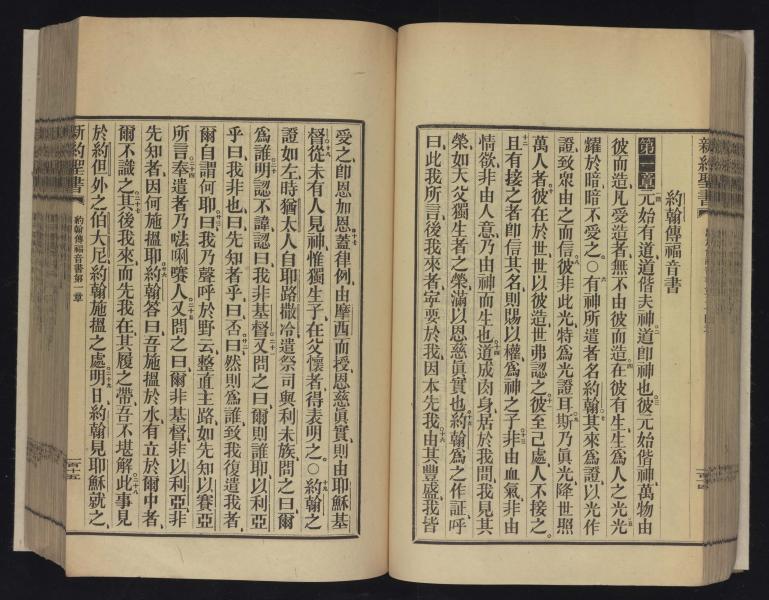 新約聖書
約翰傳福音書
第一章元始有道道偕夫神道即神也彼元始偕神萬物由
彼而造凡受造者無不由彼而造在彼有生生爲人之光光
耀於暗暗不愛之。○有神所遣者名約翰其來爲證以光作
證致衆由之而信彼非此光特爲光證耳斯乃眞光降世照
萬人者彼在於世世以彼造世弗認之彼至己處人不接之。
且有接之者即信其名則賜以權爲神之子非由血氣非由
情欲非由人意乃由神而生也道成肉身居於我間我見其
榮如天父獨生者之榮滿以恩慈眞實也約翰爲之作証呼
曰此我所言後我來者寧要於我因本先我由其豐盛我皆
愛之即恩加恩蓋律例由摩西而授恩慈眞實則由耶穌基
督從未有人見神惟獨生子在父懷者得表明之。○約翰之
證如左時猶太人自耶路撒冷遣祭司與利未族問之曰爾
爲誰明認不諱認曰我非基督又問之曰爾則誰耶以利亞
乎曰我非也曰先知者乎曰否曰然則爲誰致我復遣我者
爾自謂何耶曰我乃聲呼於野云整直主路如先知以賽亞
所言奉遣者乃㗲唎㘔人又問之曰爾非基督非以利亞非
先知者因何施搵耶約翰答曰吾施搵於水有立於爾中者
爾不識之其後我來而先我在其履之帶吾不堪解此事見
於約但外之伯大尼約翰施搵之處明日約翰見耶穌就之
新約聖書
約翰傳福音書第一章
一百十五